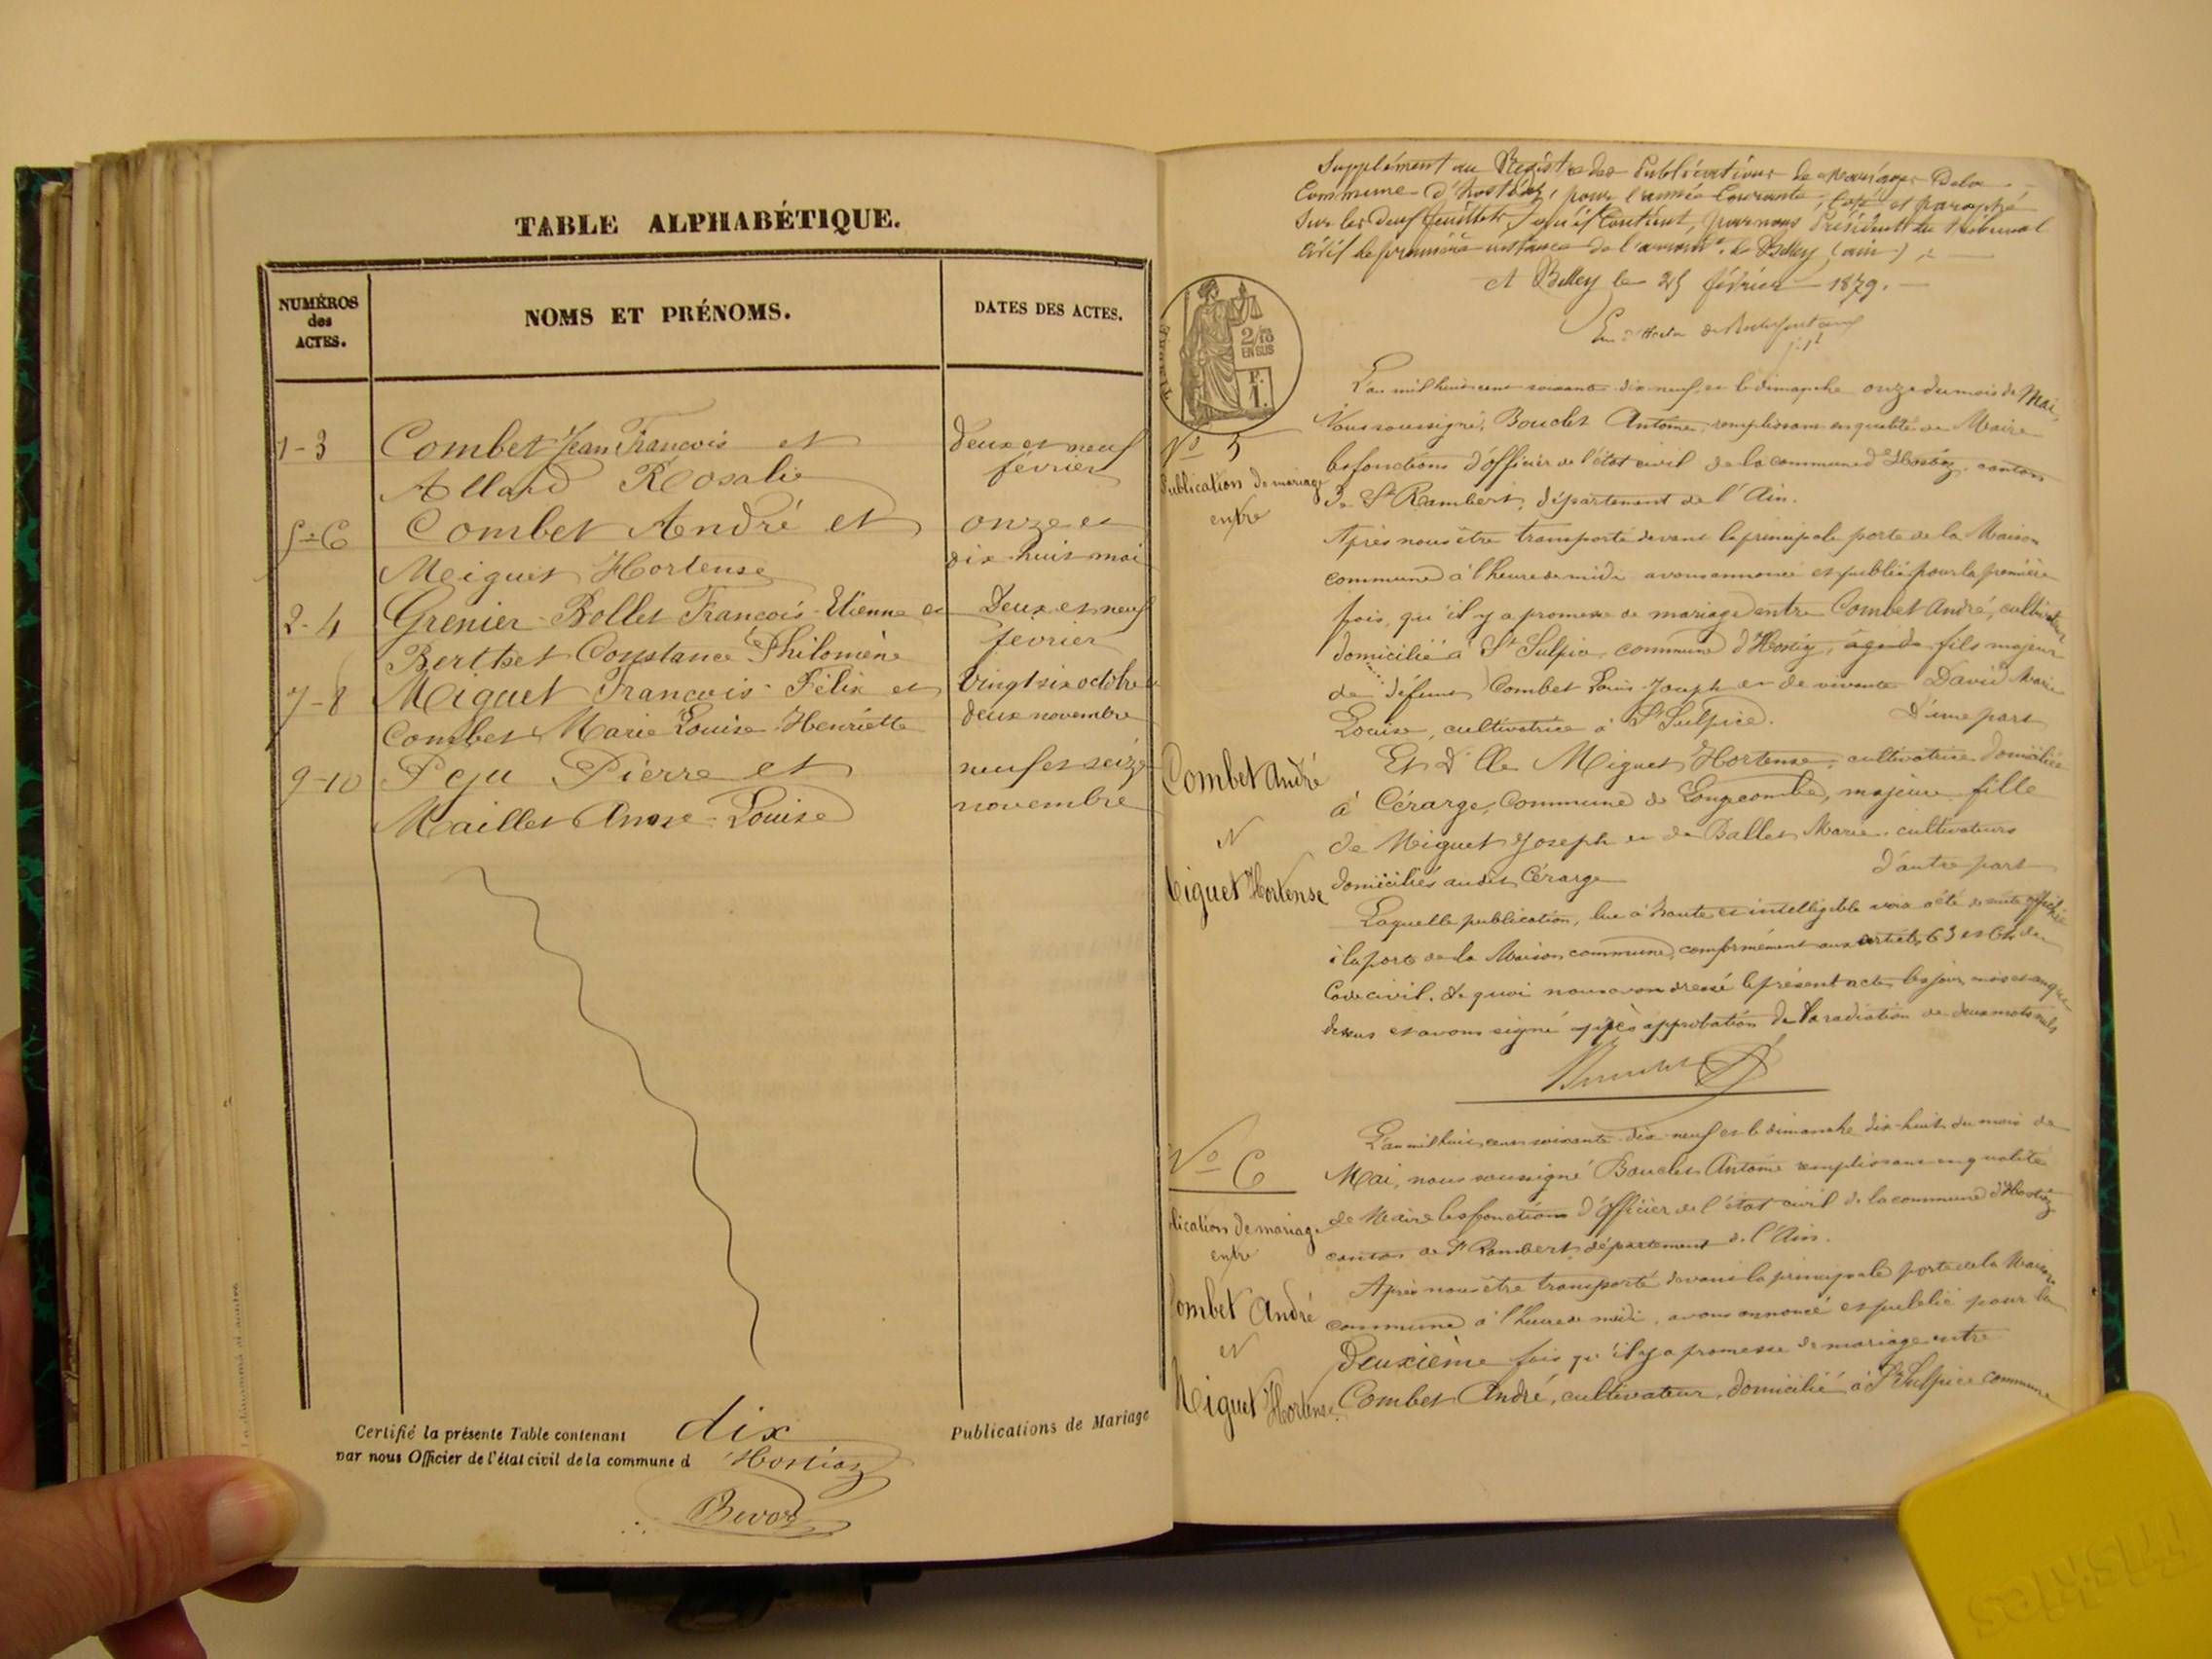 TABLE ALPHABÉTIQUE.
NUMÉROS
des
ACTES.
NOMS ET PRÉNOMS.
DATES DES ACTES.
1-3 Combet Jean François et deux et neuf
Allard Rosalie février
5-6 Combet André et onze et
Meiguet Hortense dix-huit mai
2-4 Grenier-Bollet François-Etienne et Deux et neuf
Berthet Constance Philomène février
7-8 Miguet François-Félix et Vingt six octobre
Combet Marie Louise Henriette deux novembre
9-10 Peju Pierre et neuf et seize
Maillet Anne-Louise novembre
Certifié la présente Table contenant dix Publications de Mariage
par nous Officier de l'état civil de la commune d'Hostiaz
Supplément au Registre des Publications de mariages De la
Commune d'hostiaz, pour l'année Courante, Coté et paraphé
Sur les Deux feuillets qu'il Contient, par nous Président du tribunal
Civil de première instance de l'arrond.t de Belley (ain)
A Belley le 25 février 1879.
2/10
EN SUS
F.
1.
L'an mil huit cent soixante-dix-neuf, et le dimanche onze du mois de Mai,
Nous soussigné, Bouclet Antoine, remplissant en qualité de Maire
les fonctions d'officier de l'état civil de la commune d'Hostiaz, canton
de St Rambert, département de l'Ain.
No 5
Publication de mariage
entre
Combet André
et
Miguet Hortense
Après nous être transporté devant la principale porte de la Maison
commune à l'heure de midi, avons annoncé et publié pour la première
fois, qu'il y a promesse de mariage entre Combet André, cultivateur
domicilié à St Sulpice, commune d'Hostiaz, fils majeur
de défunt Combet Louis-Joseph et de vivante David Marie
Louise, cultivatrice à St Sulpice. D'une part
Et Dlle Miguet Hortense, cultivatrice domiciliée
à Cérarge, Commune de Longecombe, majeure fille
de Miguet Joseph et de Ballet Marie, cultivateurs
domiciliés audit Cérarge d'autre part
Laquelle publication, lue à haute et intelligible voix a été de suite affichée
à la porte de la Maison commune, conformément aux articles 63 et 64 du
Code civil. de quoi nous avons dressé le présent acte les jour, mois et an que
dessus et avons signé après approbation de la radiation de deux mots nuls
No 6
Publication de mariage
entre
Combet André
et
Miguet Hortense
L'an mil huit cent soixante-dix-neuf et le dimanche dix-huit du mois de
Mai, nous soussigné Bouclet Antoine remplissant en qualité
de Maire les fonctions d'officier de l'état civil de la commune d'Hostiaz
canton de St Rambert département de l'Ain.
Après nous être transporté devant la principale porte de la Maison
commune à l'heure de midi, avons annoncé et publié pour la
Deuxième fois qu'il y a promesse de mariage entre
Combet André, cultivateur, domicilié à St Sulpice commune